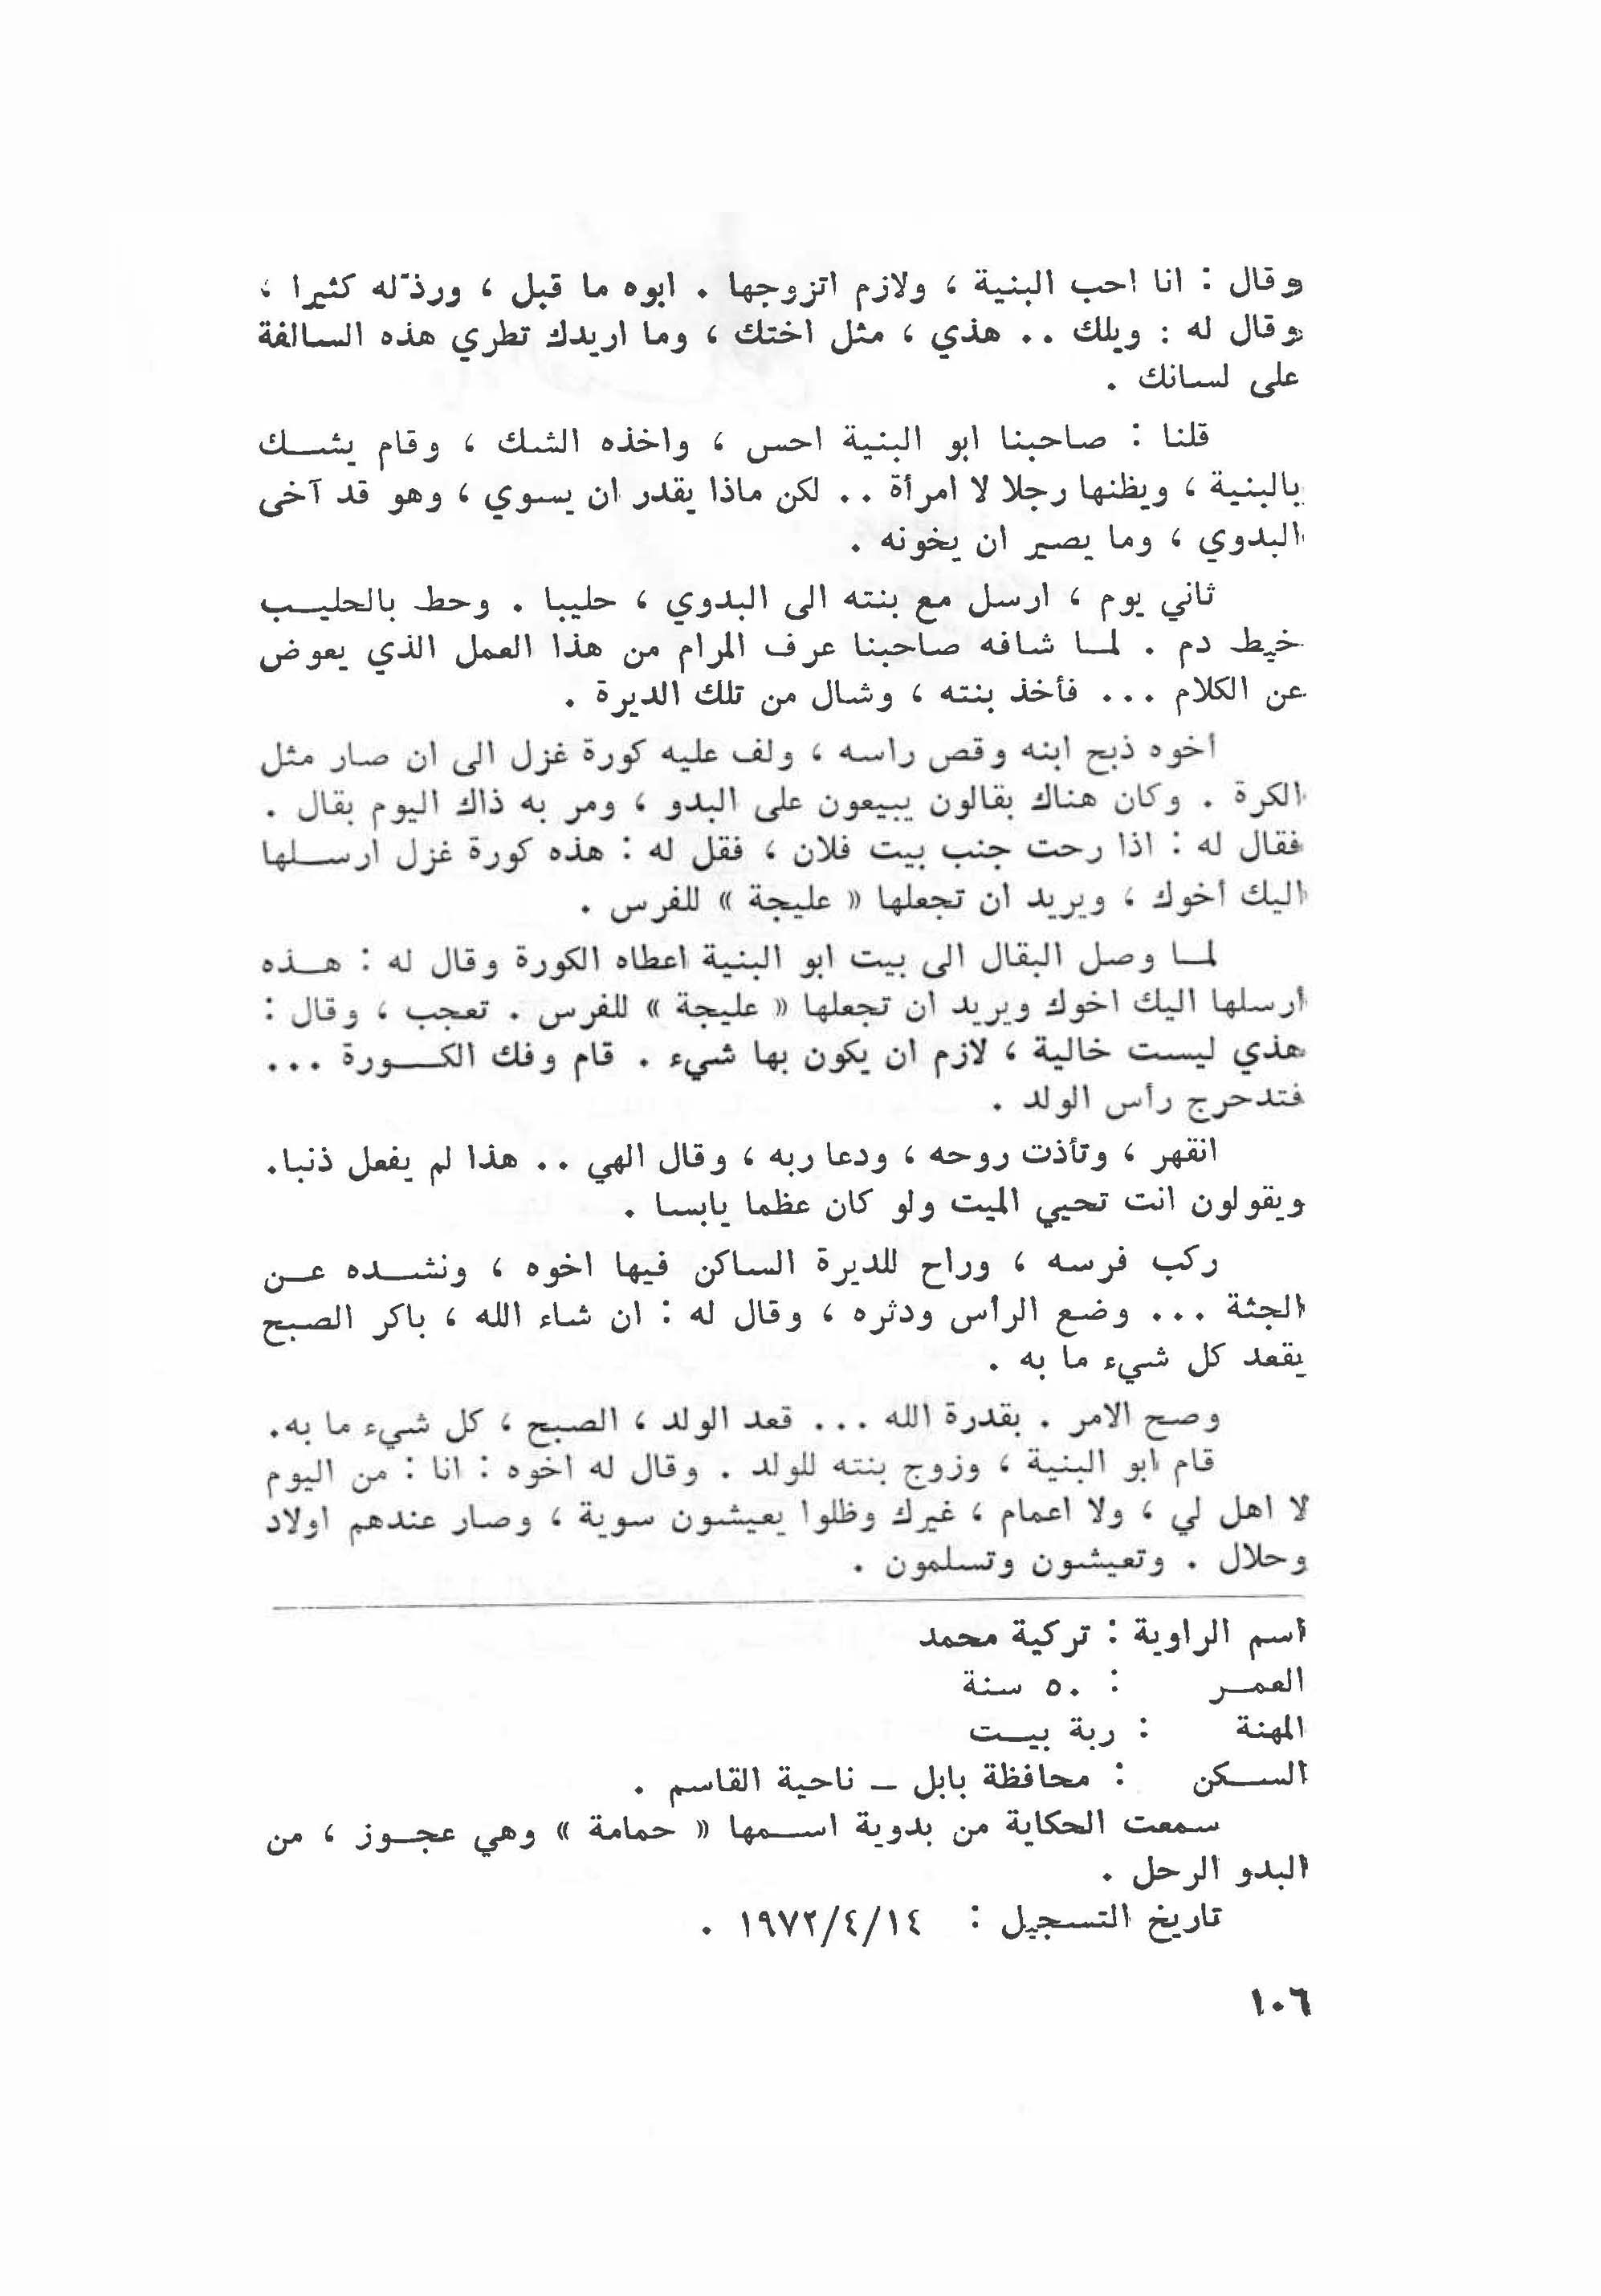 وقال : انا احب البنية ، ولازم اتزوجها . ابوه ما قبل ، ورذّله كثيرا ،
وقال له : ويلك .. هذي ، مثل اختك ، وما اريدك تطري هذه السالفة
على لسانك .
قلنا : صاحبنا ابو البنية احس ، واخذه الشك ، وقام يشـــك
بالبنية ، ويظنها رجلا لا امرأة .. لكن ماذا يقدر ان يسوي ، وهو قد آخى
البدوي ، وما يصير ان يخونه .
ثاني يوم ، ارسل مع بنته الى البدوي ، حليبا . وحط بالحليـــب
خيط دم . لمــا شافه صاحبنا عرف المرام من هذا العمل الذي يعوض
عن الكلام ... فأخذ بنته ، وشال من تلك الديرة .
أخوه ذبح ابنه وقص راسه ، ولف عليه كورة غزل الى ان صار مثل
الكرة . وكان هناك بقالون يبيعون على البدو ، ومر به ذاك اليوم بقال .
فقال له : اذا رحت جنب بيت فلان ، فقل له : هذه كورة غزل ارســلها
اليك أخوك ، ويريد ان تجعلها « عليجة » للفرس .
لمــا وصل البقال الى بيت ابو البنية اعطاه الكورة وقال له : هــذه
أرسلها اليك اخوك ويريد ان تجعلها « عليجة » للفرس . تعجب ، وقال :
هذي ليست خالية ، لازم ان يكون بها شيء . قام وفك الكـــورة ...
فتدحرج رأس الولد .
انقهر ، وتأذت روحه ، ودعا ربه ، وقال الهي .. هذا لم يفعل ذنبا.
ويقولون انت تحيي الميت ولو كان عظما يابسا .
ركب فرسه ، وراح للديرة الساكن فيها اخوه ، ونشــده عــن
الجثة ... وضع الرأس ودثره ، وقال له : ان شاء الله ، باكر الصبح
يقعد كل شيء ما به .
وصح الامر . بقدرة الله ... قعد الولد ، الصبح ، كل شيء ما به.
قام ابو البنية ، وزوج بنته للولد . وقال له اخوه : انا : من اليوم
لا اهل لي ، ولا اعمام ، غيرك وظلوا يعيشون سوية ، وصار عندهم اولاد
وحلال . وتعيشون وتسلمون .
اسم الراوية : تركية محمد
العمــر : ٥٠ سنة
المهنة : ربة بيــت
الســـكن : محافظة بابل ــ ناحية القاسم .
سمعت الحكاية من بدوية اســـمها « حمامة » وهي عجــوز ، من
البدو الرحل .
تاريخ التســجيل : ١٩٧٢/٤/١٤ .
١٠٦